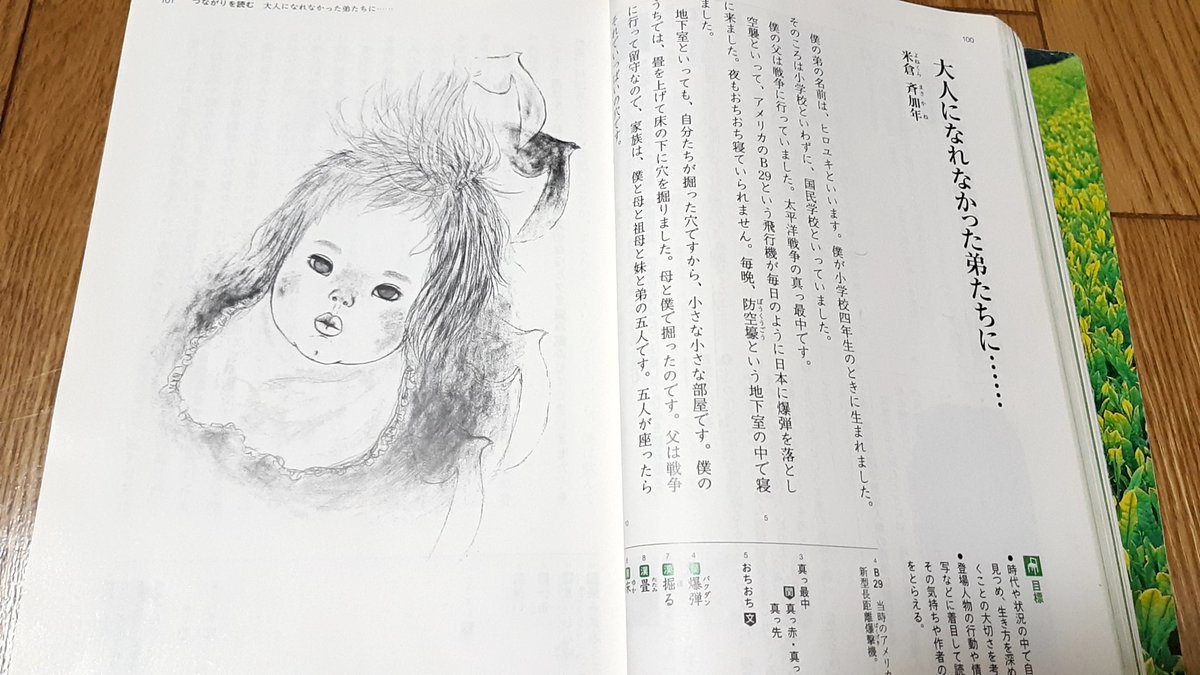 100
大人になれなかった弟たちに……
米倉 斉加年
よねくら まさかね
僕の弟の名前は、ヒロユキといいます。僕が小学校四年生のときに生まれました。
そのころは小学校といわずに、国民学校といっていました。
僕の父は戦争に行っていました。太平洋戦争の真っ最中です。
空襲といって、アメリカのB29という飛行機が毎日のように日本に爆弾を落とし
に来ました。夜もおちおち寝ていられません。毎晩、防空壕という地下室の中で寝
ぼうくうごう
ました。
地下室といっても、自分たちが掘った穴ですから、小さな小さな部屋です。僕の
うちでは、畳を上げて床の下に穴を掘りました。母と僕で掘ったのです。父は戦争
に行って留守なので、家族は、僕と母と祖母と妹と弟の五人です。五人が座ったら
それでいっぱいの穴です。
5
目標
●時代や状況の中で自
見つめ、生き方を深め
くことの大切さを考
●登場人物の行動や情
写などに着目して読
その気持ちや作者の
をとらえる。
4 B29 当時のアメリカ
新型長距離爆撃機。
3 真っ最中
関 真っ赤・真っ
真っ先
5 おちおち 文
4 爆弾
バクダン
7 漢 掘る
ほ
8 漢 畳
たたみ
101
つながりを読む 大人になれなかった弟たちに……